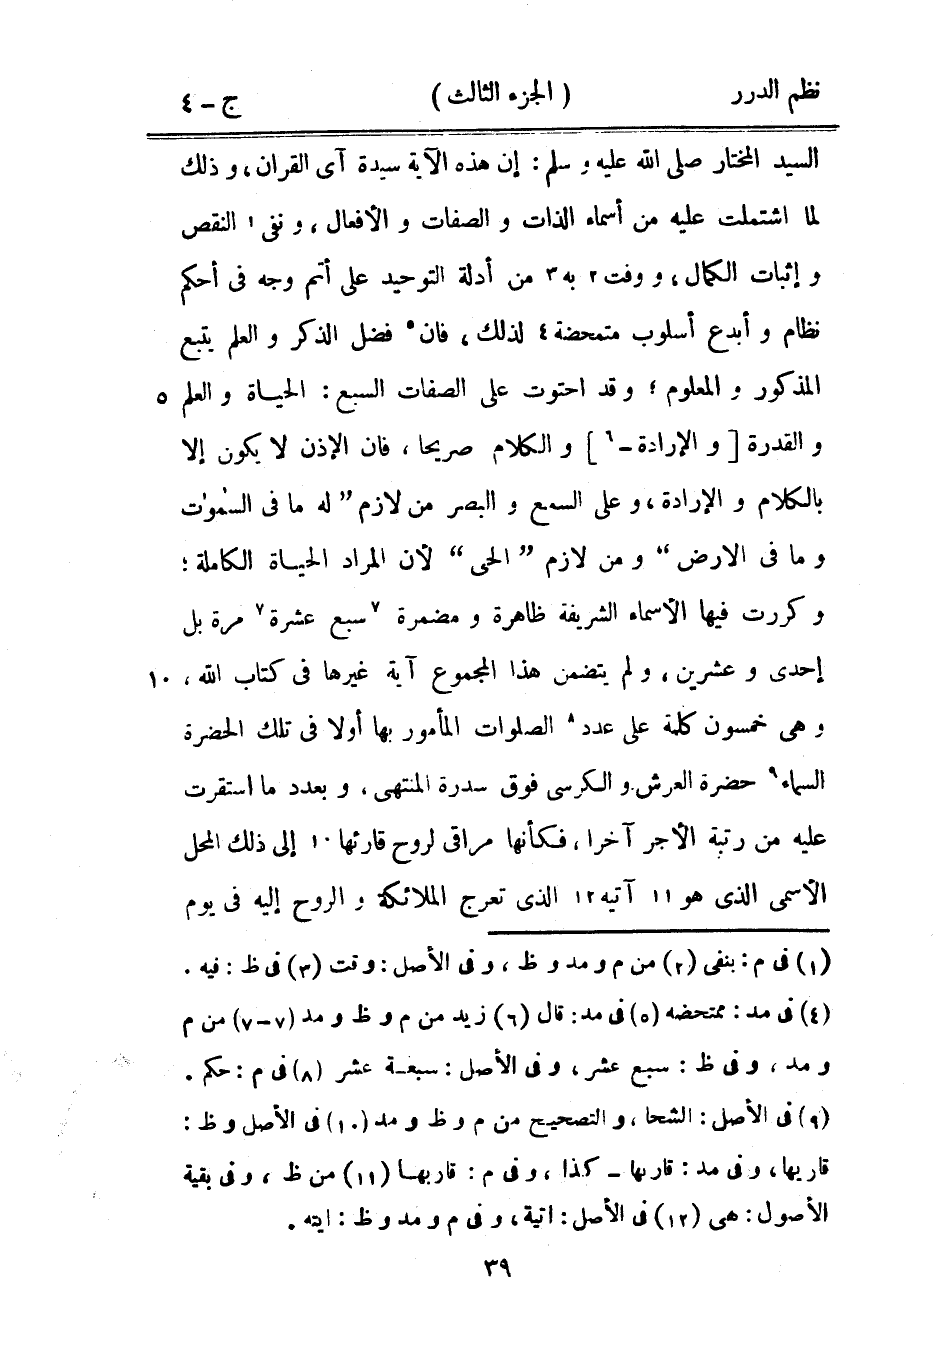 نظم الدرر ( الجزء الثالث ) ج - ٤
السيد المختار صلى الله عليه و سلم : إن هذه الآية سيدة آى القران ، و ذلك
لما اشتملت عليه من أسماء الذات و الصفات و الأفعال ، و نفى ١ النقص
و إثبات الكمال ، و وفت ٢ به ٣ من أدلة التوحيد على أتم وجه فى أحكم
نظام و أبدع أسلوب متمحضة ٤ لذلك ، فان ٥ فضل الذكر و العلم يتبع
المذكور و المعلوم ؛ و قد احتوت على الصفات السبع : الحياة و العلم ٥
و القدرة [ و الإرادة - ٦ ] و الكلام صريحا ، فان الإذن لا يكون إلا
بالكلام و الإرادة ، و على السمع و البصر من لازم " له ما فى السمٰوٰت
و ما فى الارض " و من لازم " الحى " لأن المراد الحياة الكاملة ؛
و كررت فيها الأسماء الشريفة ظاهرة و مضمرة ٧ سبع عشرة ٧ مرة بل
إحدى و عشرين ، و لم يتضمن هذا المجموع آية غيرها فى كتاب الله ، ١٠
و هى خمسون كلمة على عدد ٨ الصلوات المأمور بها أولا فى تلك الحضرة
السماء ٩ حضرة العرش و الكرسى فوق سدرة المنتهى ، و بعدد ما استقرت
عليه من رتبة الأجر آخرا ، فكأنها مراقى لروح قارئها ١٠ إلى ذلك المحل
الأسمى الذى هو ١١ آتيه ١٢ الذى تعرج الملائكة و الروح إليه فى يوم
(١) فى م : بنفى (٢) من م و مد و ظ ، و فى الأصل : وقت (٣) فى ظ : فيه .
(٤) فى مد : ممتحضه (٥) فى مد : قال (٦) زيد من م و ظ و مد (٧-٧) من م
و مد ، و فى ظ : سبع عشر ، و فى الأصل : سبعة عشر (٨) فى م : حكم .
(٩) فى الأصل : الشحا ، و التصحيح من م و ظ و مد (١٠) فى الأصل و ظ :
قاريها ، و فى مد : قاربها - كذا ، و فى م : قاربها (١١) من ظ ، و فى بقية
الأصول : هى (١٢) فى الأصل : اتية ، و فى م و مد و ظ : ايته .
٣٩